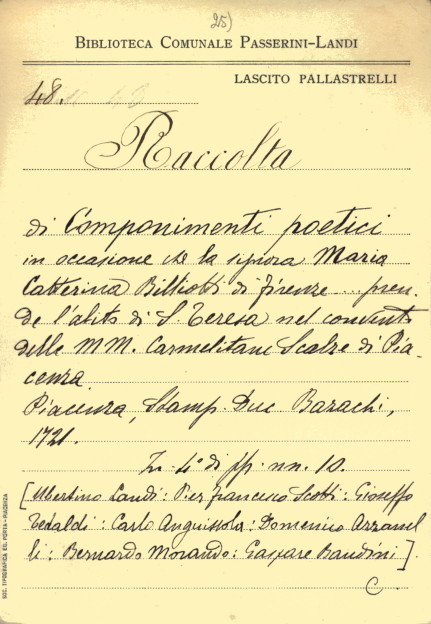 25)
BIBLIOTECA COMUNALE PASSERINI-LANDI
LASCITO PALLASTRELLI
48.
Raccolta
di Componimenti poetici
in occasione che la signora Maria
Catterina Billiotti di Firenze ... pren-
de l'abito di S. Teresa nel convento
delle MM. Carmelitane Scalze di Pia-
cenza
Piacenza, Stamp. Duc. Bazachi,
1721.
In 4° di pp. nn. 10.
[Ubertino Landi: Pier Francesco Scotti: Gioseffo
Tedaldi: Carlo Anguissola: Domenico Azzanel
li: Bernardo Morando: Gaspare Bandini].
C.
SOC. TIPOGRAFICA ED. PORTA - PIACENZA